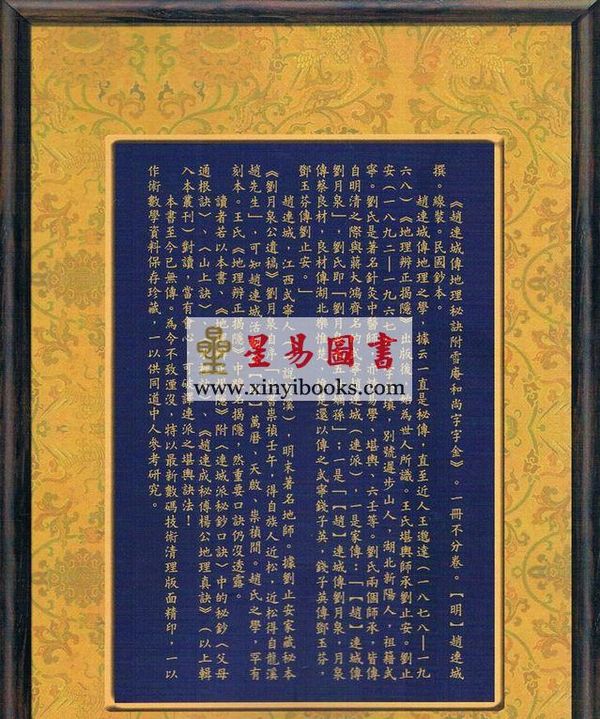 《趙連城傳地理秘訣附雪庵和尚字字金》。一冊不分卷。【明】趙連城
撰。線裝。民國鈔本。
趙連城傳地理之學，據云一直是秘傳，直至近人王邈達（一八七八—一九
六八）《地理辨正揭隱》出版後，為世人所識。王氏堪輿師承劉止安。劉止
安（一八九二—一九六七），號遲步山人，湖北新陽人，祖籍武
寧。劉氏是著名針灸中醫師，亦易學、堪輿、六壬等。劉氏兩個師承，皆傳
自明清之際與蔣大鴻齊名的寧連城（連派），一是家傳：「【趙】連城傳
劉月泉」，劉氏即「劉月泉五孫」；一是「【趙】連城傳劉月泉，月泉
傳蔡良材，良材傳湖北樂還以傳之武寧錢子英，錢子英傳鄧玉芬，
鄧玉芬傳劉止安。」
趙連城，江西武寧人說溪），明末著名地師。據劉止安家藏秘本
《劉月泉公遺稿》劉月泉自序「崇禎壬午，得自族人近松，近松得自龍溪
趙先生」，可知趙連城活萬曆、天啟、崇禎間。趙氏之學，罕有
刻本。王氏《地理辨正揭隱》中揭隱。然重要口訣仍沒透露。
讀者若以本書、《地隱》附〈連城派秘鈔口訣〉中的秘鈔〈父母
通根訣〉、〈山上訣〉、《趙連成秘傳楊公地理真訣》（以上輯
入本叢刊）對讀，當有會心，可連派之堪輿訣法！
本書至今已無傳。為令不致湮沒，特以最新數碼技術清理版面精印，一以
作術數學資料保存珍藏，一以供同道中人參考研究。
星易圖書
www.xinyibooks.com